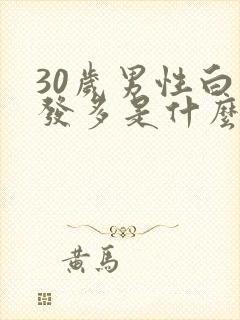 30歲男性白
發多是什麼
黃馬